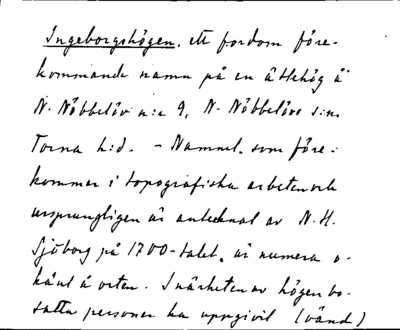 Ingeborgshögen, ett fordom före-
kommande namn på en ättehög å
N. Nöbbelöv n:r 9, N. Nöbbelövs s:n
Torna h:d. - Namnet, som före-
kommer i topografiska arbeten och
ursprungligen är antecknat av N. H.
Sjöborg på 1700-talet, är numera o-
känt å orten. I närheten av högen bo-
satta personer ha uppgivit (vänd)